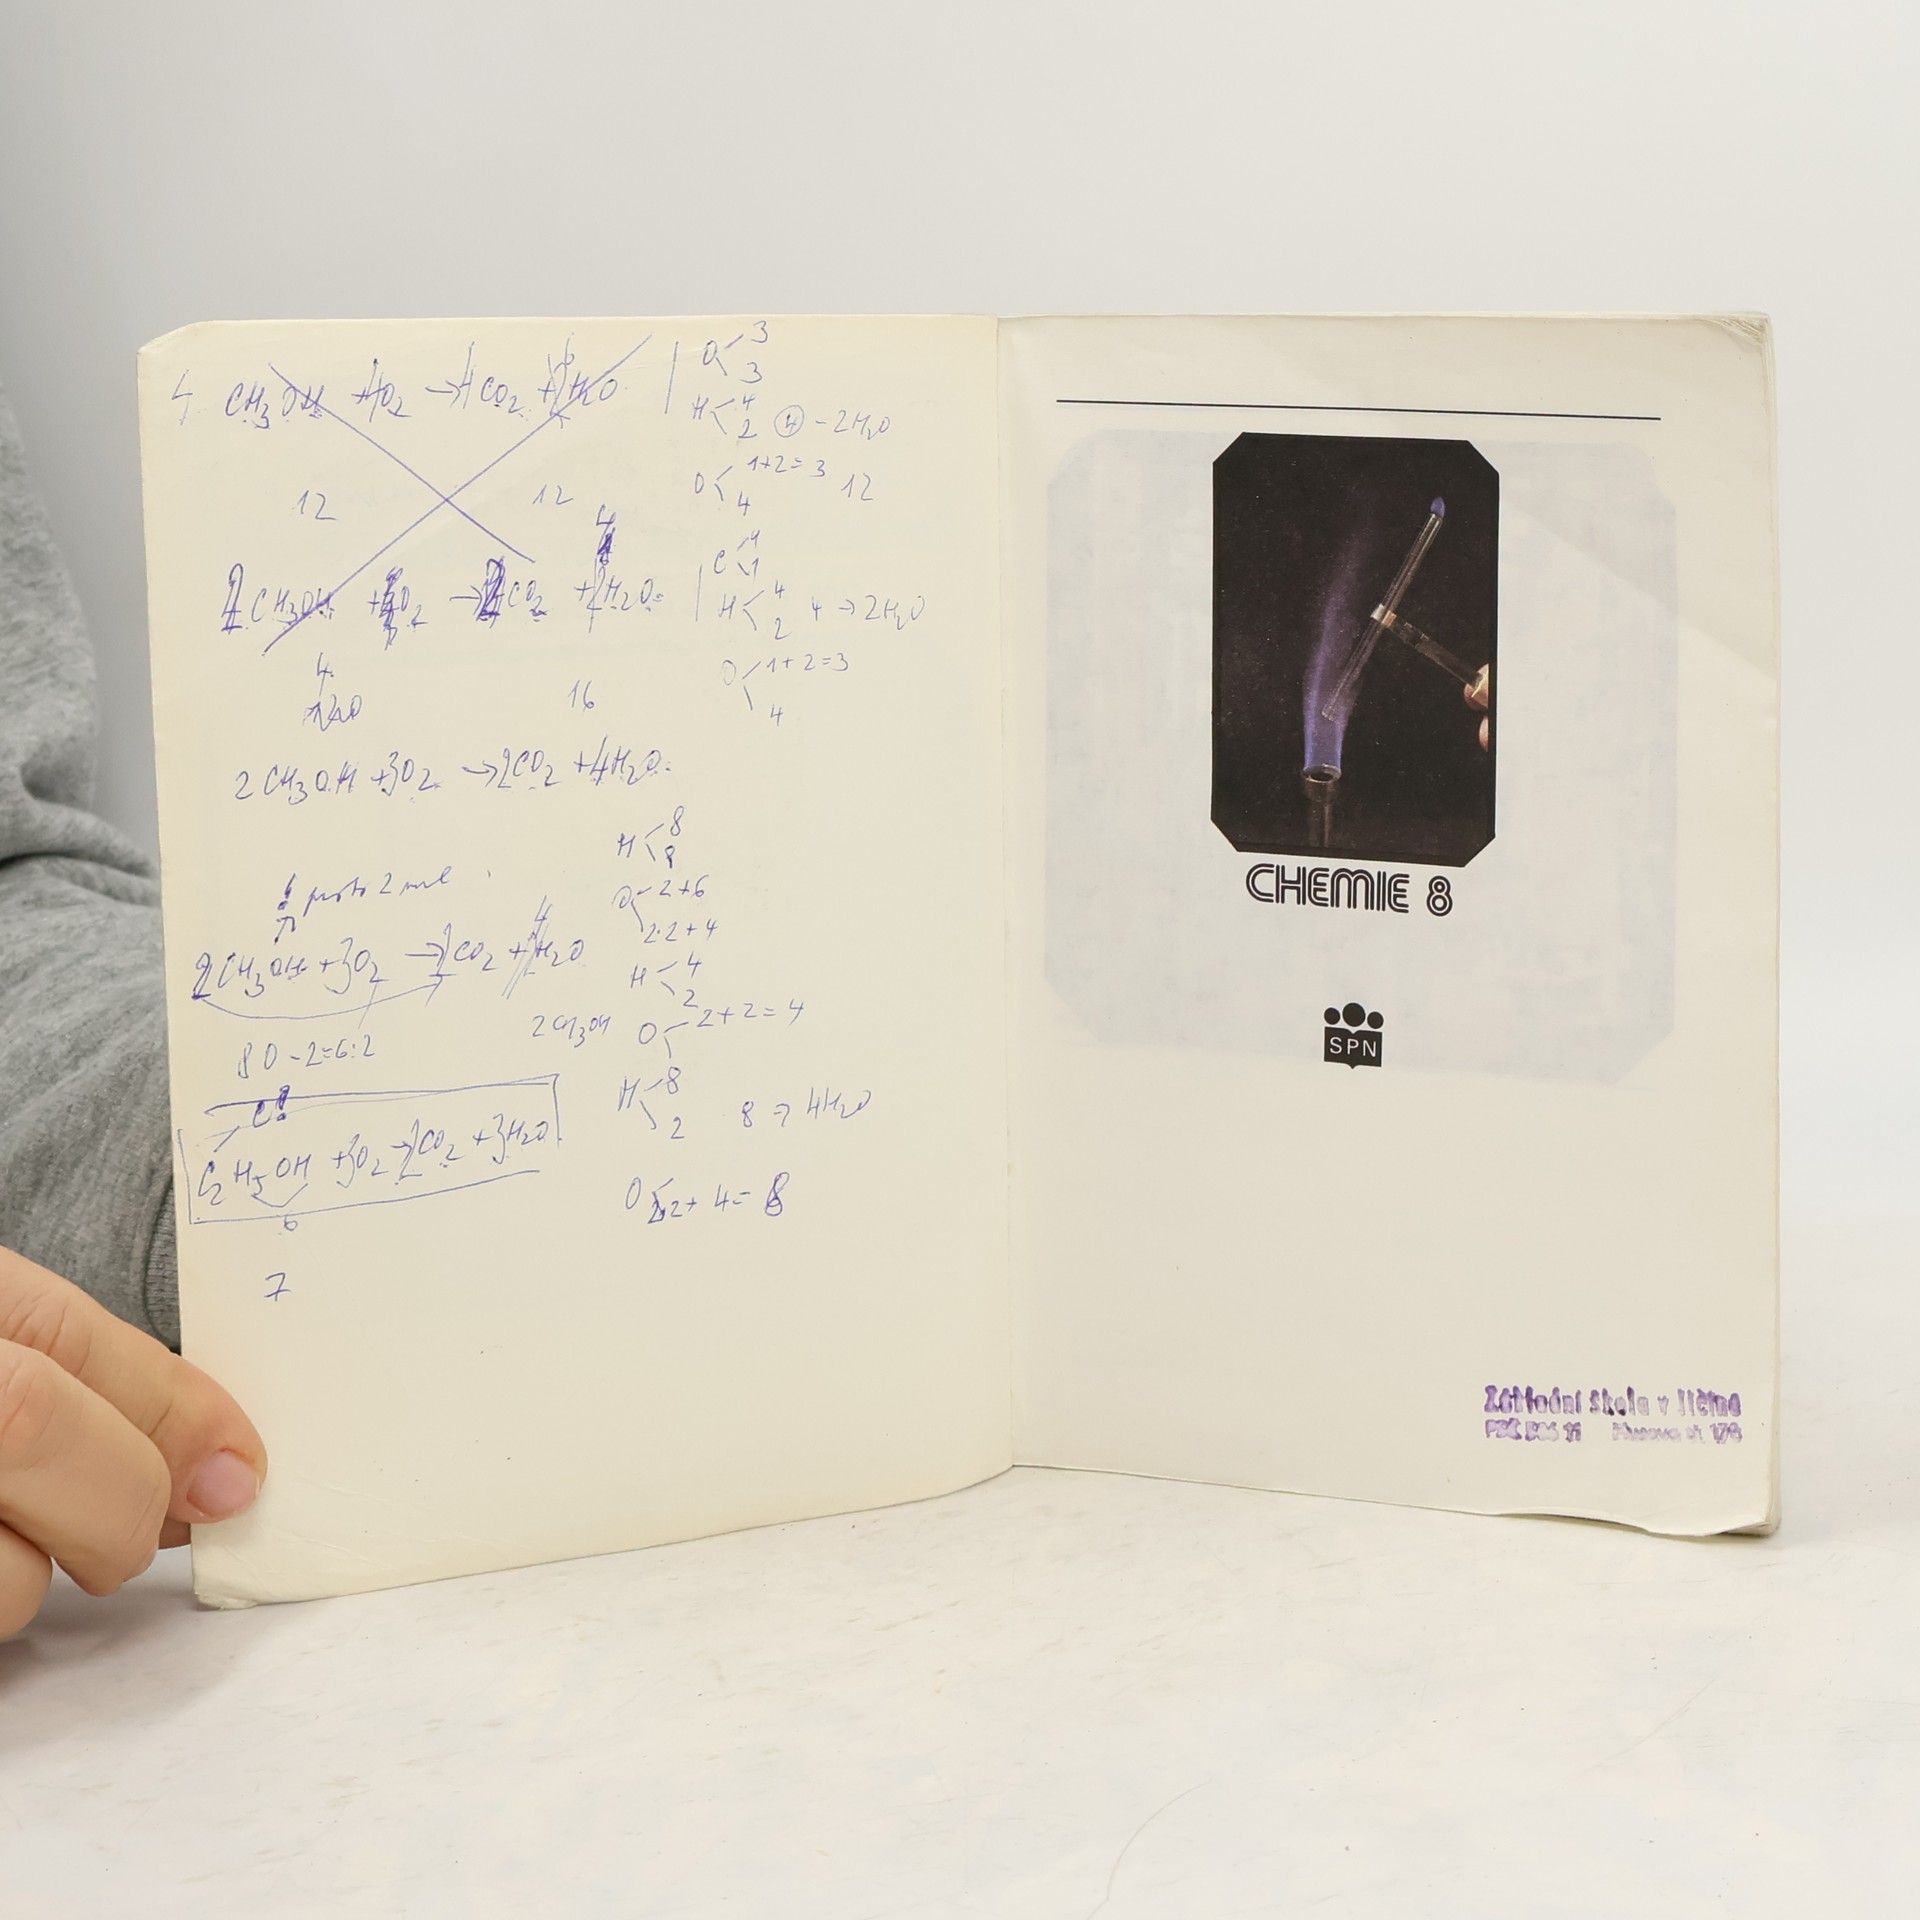 CH3OH + 4O2 → 4CO2 + H2O
O 3
3
H 4
2 4 - 2H2O
12 12
O 1+2=3 12
4
CH3OH + O2 → CO2 + H2O
C 1
1
H 4
2 4 → 2H2O
O 1+2=3
4
4
16
2CH3OH + 3O2 → 2CO2 + 4H2O
H 8
8
O 2+6
2·2+4
! proto 2
2CH3OH + 3O2 → 2CO2 + 4H2O
H 4
2
2CH3OH
O 2+2=4
8O-2=6:2
H 8
2 8 → 4H2O
C!
C2H5OH + 3O2 → 2CO2 + 3H2O
6
O 2+4=8
7
CHEMIE 8
SPN
Základní škola v Jičíně
PSČ 506 11